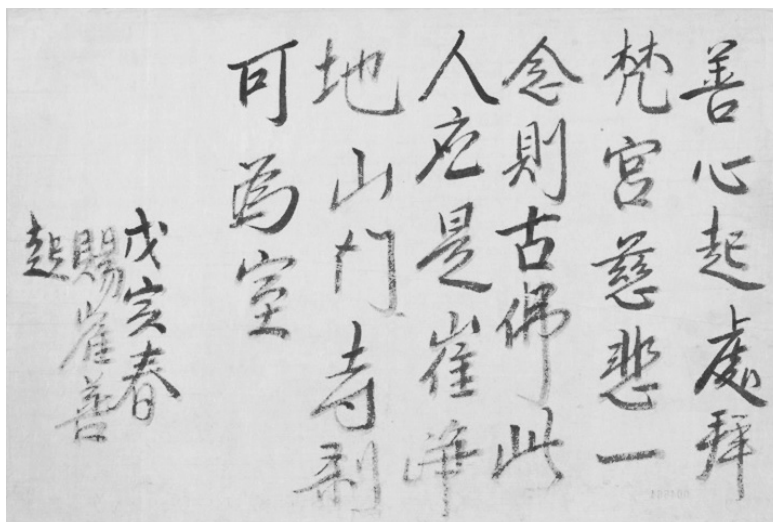 善心起處拜
梵宮慈悲一
念則古佛此
人应是崔峰
地山門寺刹
可為室
戊寅春
賜崔善
起